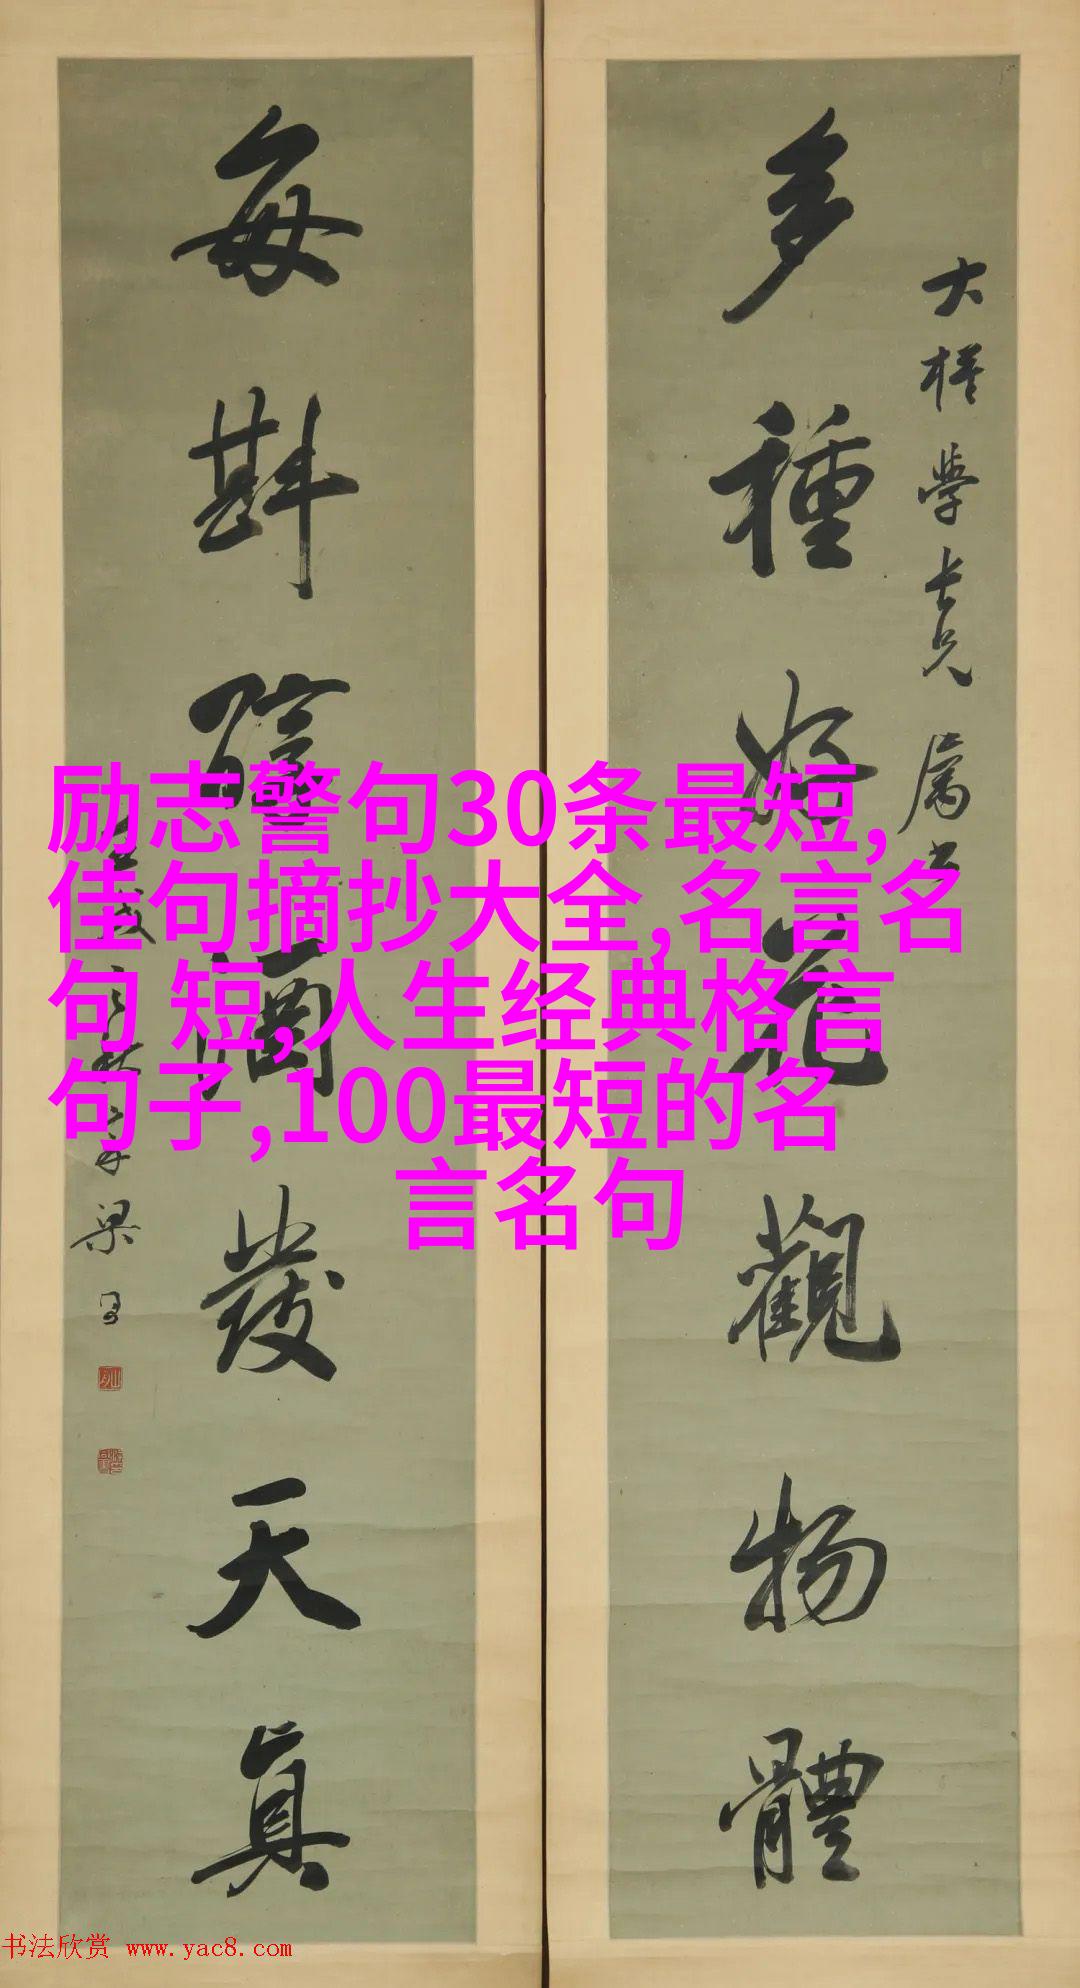 多種好花觀物體
學長兄屬書
每斟醇酒發天真
励志警句30条最短,
佳句摘抄大全,名言名
句 短,人生经典格言
句子,100最短的名
言名句
书法欣赏 www.yac8.com